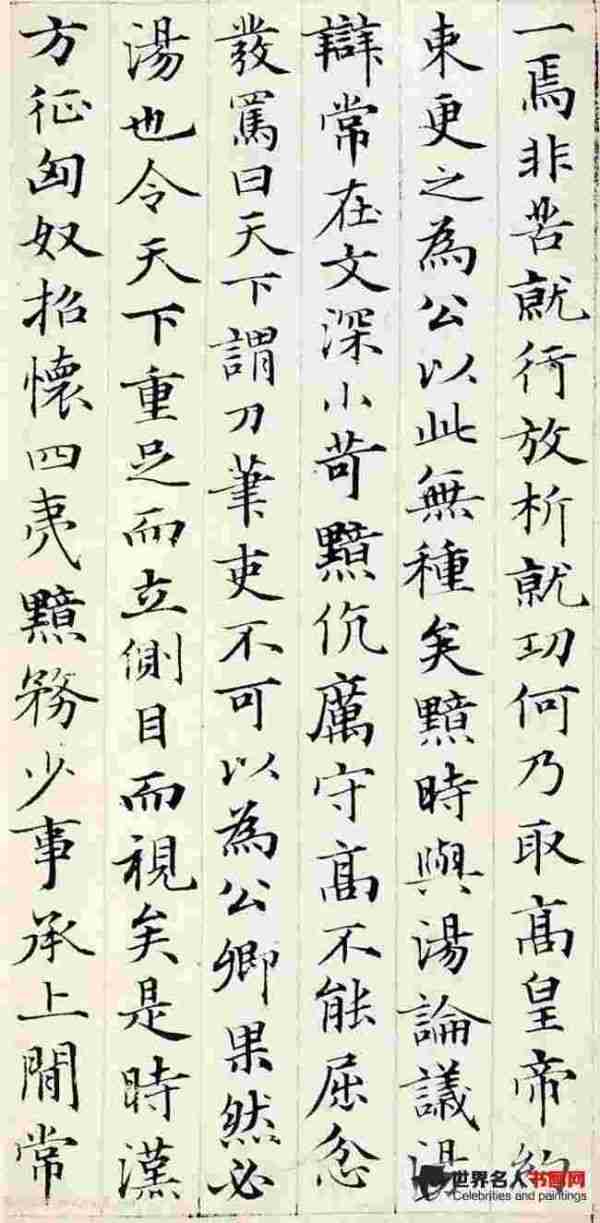 一焉非苦就行放析就功何乃取高皇帝約
束更之為公以此無種矣黯時與湯論議湯
辯常在文深小苛黯伉厲守高不能屈忿
發罵曰天下謂刀筆吏不可以為公卿果然必
湯也令天下重足而立側目而視矣是時漢
方征匈奴招懷四夷黯務少事承上閒常
世界名人书画网
Celebrities and paintings